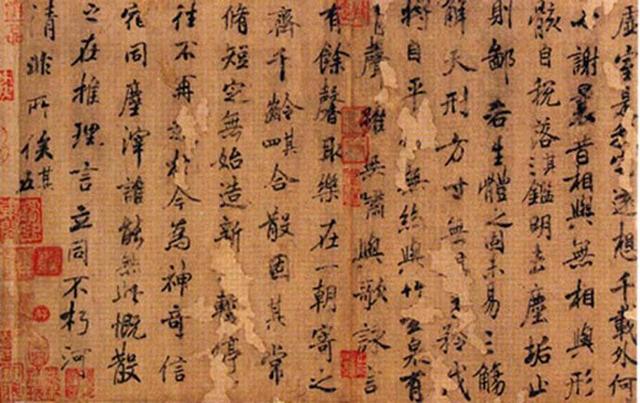 虚室是我宅遠想千載外何
必謝曩昔相與無相與形
骸自税落其三鑑明去塵垢止
則鄙吝生體之固未易三觴
解天刑方寸無主矜伐
將自平無絲與竹玄泉有
聲雖無嘯與歌詠言
有餘馨取樂在一朝寄之
齊千齡其四合散固其常
脩短定無始造新暫停
往不再起於今為神奇信
宿同塵滓誰能無此慨散
之在推理言立同不朽河
清非所俟其五